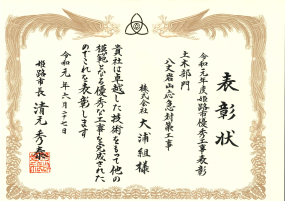 表彰状
令和元年度姫路市優秀工事表彰
土木部門
八丈岩山応急対策工事
株式会社 大浦組様
貴社は卓越した技術をもって他の
模範となる優秀な工事を完成された
のでこれを表彰します
令和元年六月二十七日
姫路市長 清元秀泰